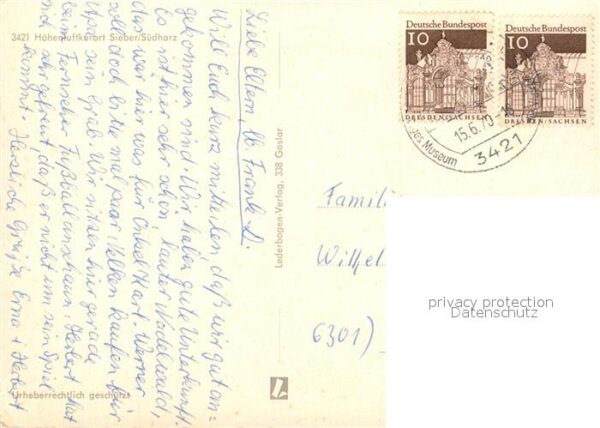 3421 Höhenluftkurort Sieber/Südharz
Liebe Eltern, lb. Frank L.
Will Euch kurz mitteilen daß wir gut an=
gekommen sind. Wir haben gute Unterkunft.
Es ist hier sehr schön, lauter Nadelwald,
das wär hier was für Onkel Karl. Werner
soll doch bitte mal paar Nelken kaufen für
Opa sein Grab. Wir sitzen hier gerade
beim Fernseher Fußball anschauen. Herbert hat
sehr gefreut daß er nicht um sein Spiel
kommt. Herzliche Grüße Erna + Herbert
Urheberrechtlich geschützt
Lederbogen-Verlag, 338 Goslar
Deutsche Bundespost
10
DRESDEN/SACHSEN
Deutsche Bundespost
10
DRESDEN/SACHSEN
15.6.70
Museum
3421
Famili
Wilhel
6301)
privacy protection
Datenschutz